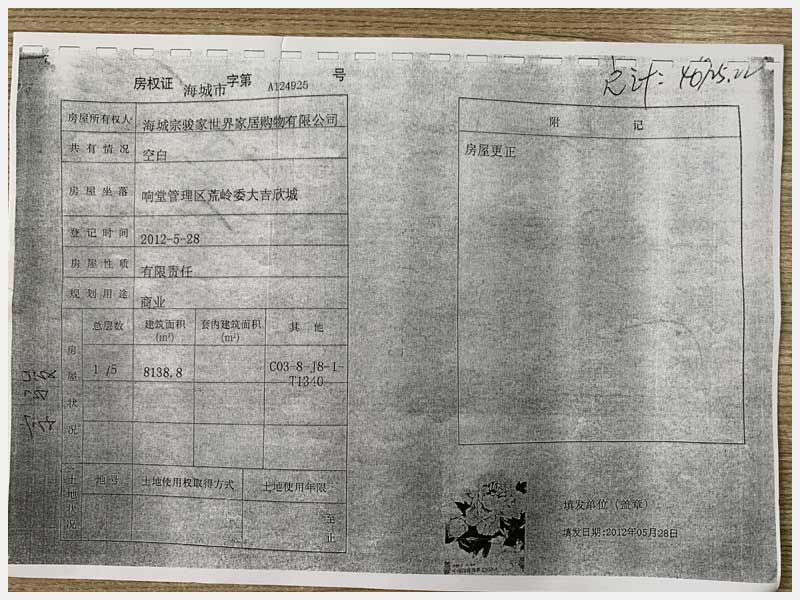 房权证 海城市 字第 A124925 号
房屋所有权人 海城宗骏家世界家居购物有限公司
共有情况 空白
房屋坐落 响堂管理区荒岭委大吉欣城
登记时间 2012-5-28
房屋性质 有限责任
规划用途 商业
房屋状况 总层数 建筑面积(m²) 套内建筑面积(m²) 其他
1/5 8138.8 C03-8-J8-1-
T1340
土地状况 地号 土地使用权取得方式 土地使用年限
至
止
总计:
附记
房屋更正
填发单位（盖章）
填发日期:2012年05月28日